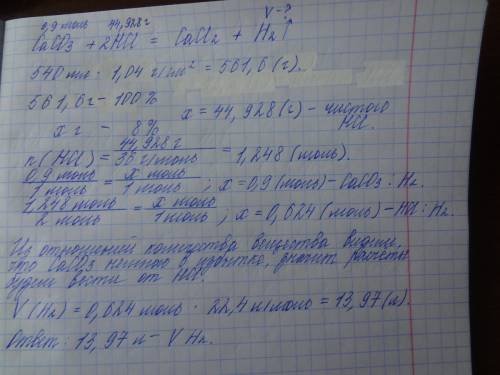 0,9 моль 44,928 г V-?
CaCO3 + 2HCl = CaCl2 + H2↑
540 мл · 1,04 г/мл² = 561,6 (г).
561,6 г - 100 %
x г - 8 % x = 44,928 (г) - чистого HCl.
n (HCl) = 44,928 г / 36 г/моль = 1,248 (моль).
0,9 моль / 1 моль = x моль / 1 моль ; x = 0,9 (моль) - CaCO3 : H2.
1,248 моль / 2 моль = x моль / 1 моль ; x = 0,624 (моль) - HCl : H2.
Из отношений количества вещества видим,
что CaCO3 немного в избытке, значит расчёты
будем вести от HCl.
V (H2) = 0,624 моль · 22,4 л/моль = 13,97 (л).
Ответ: 13,97 л - V H2.